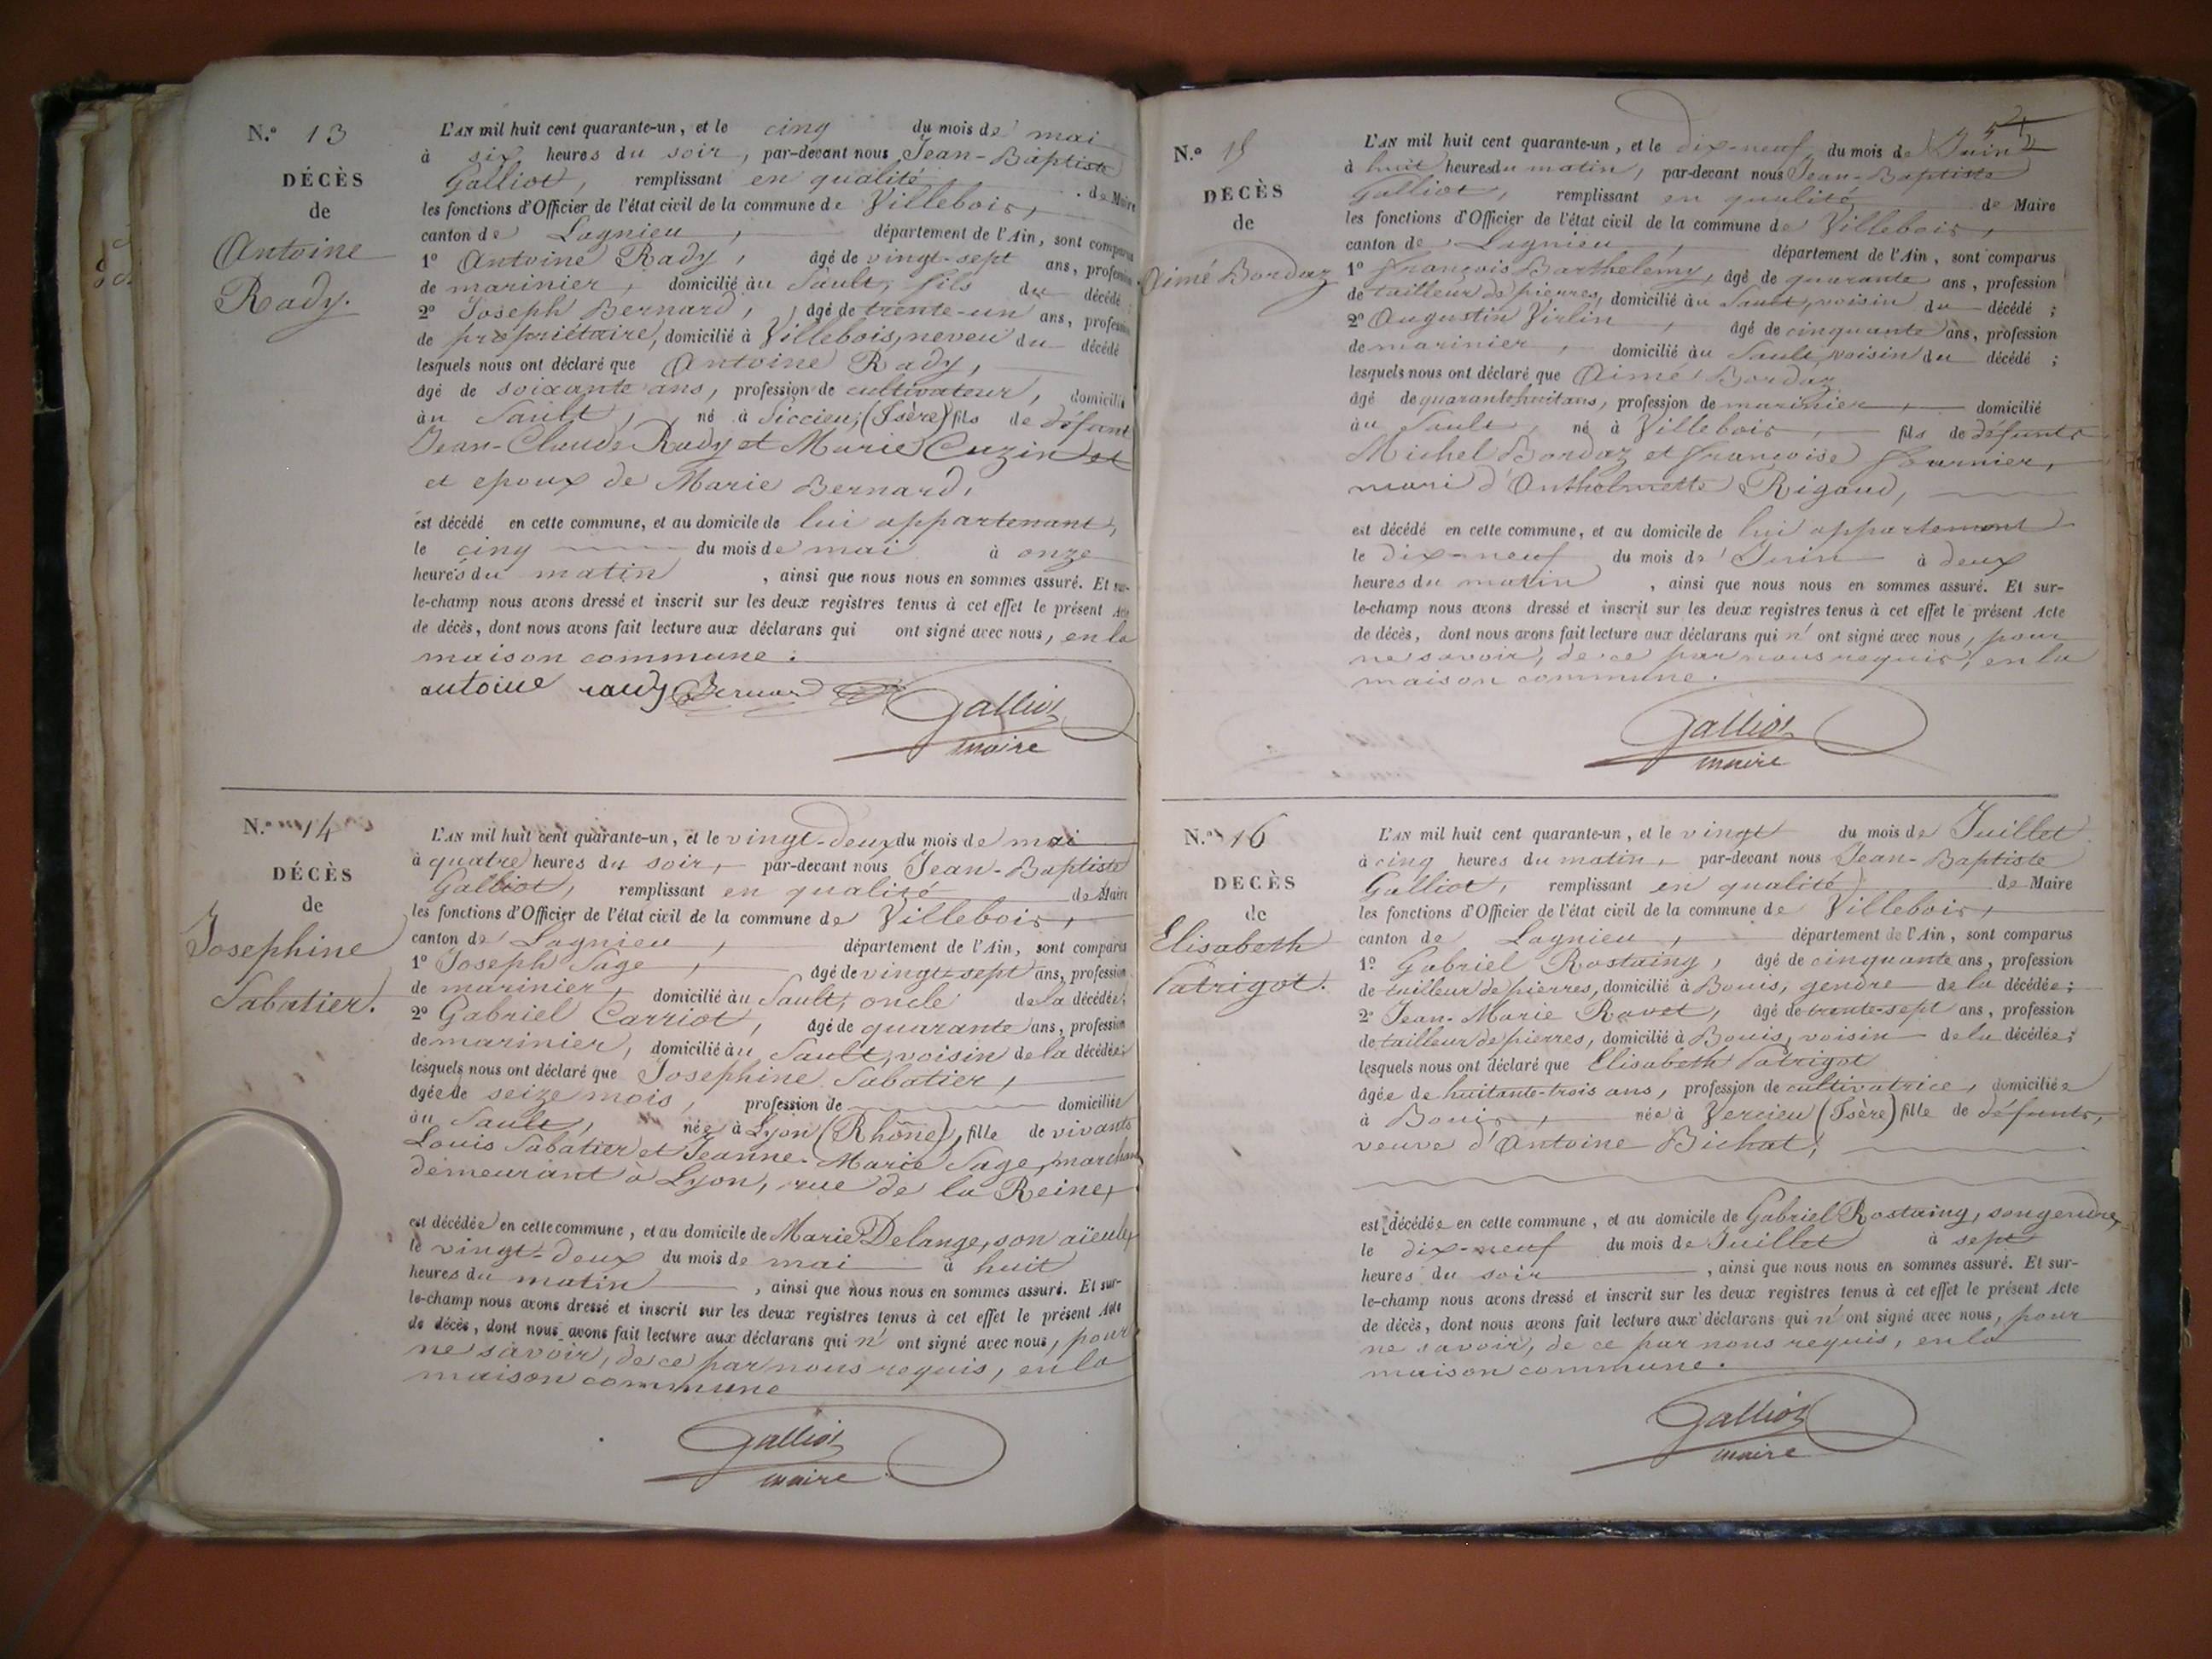 N.o 13
DÉCÈS
de
Antoine
Rady.
L'AN mil huit cent quarante-un, et le cinq du mois de mai
à six heures du soir, par-devant nous Jean-Baptiste
Galliot, remplissant en qualité de Maire
les fonctions d'Officier de l'état civil de la commune de Villebois,
canton de Lagnieu, département de l'Ain, sont comparus
1o Antoine Rady, âgé de vingt-sept ans, profession
de marinier, domicilié au Sault, fils du décédé
2o Joseph Bernard, âgé de trente-un ans, profession
de propriétaire, domicilié à Villebois, neveu du décédé
lesquels nous ont déclaré que Antoine Rady,
âgé de soixante ans, profession de cultivateur, domicilié
au Sault, né à Siccieu, (Isère) fils de défunt
Jean-Claude Rady et Marie Cuzin et
et epoux de Marie Bernard,
est décédé en cette commune, et au domicile de lui appartenant,
le cinq du mois de mai à onze
heures du matin, ainsi que nous nous en sommes assuré. Et sur-
le-champ nous avons dressé et inscrit sur les deux registres tenus à cet effet le présent Acte
de décès, dont nous avons fait lecture aux déclarans qui ont signé avec nous, en la
maison commune.
antoine rady Bernard Galliot
maire
N.o 14
DÉCÈS
de
Josephine
Sabatier.
L'AN mil huit cent quarante-un, et le vingt-deux du mois de mai
à quatre heures du soir, par-devant nous Jean-Baptiste
Galliot, remplissant en qualité de Maire
les fonctions d'Officier de l'état civil de la commune de Villebois,
canton de Lagnieu, département de l'Ain, sont comparus
1o Joseph Sage, âgé de vingt-sept ans, profession
de marinier, domicilié au Sault, oncle de la décédée;
2o Gabriel Carriot, âgé de quarante ans, profession
de marinier, domicilié au Sault, voisin de la décédée;
lesquels nous ont déclaré que Josephine Sabatier,
âgée de seize mois, profession de domiciliée
au Sault, née à Lyon (Rhône), fille de vivants
Louis Sabatier et Jeanne-Marie Sage, marchand
demeurant à Lyon, rue de la Reine,
est décédée en cette commune, et au domicile de Marie Delange, son aïeule,
le vingt-deux du mois de mai à huit
heures du matin, ainsi que nous nous en sommes assuré. Et sur-
le-champ nous avons dressé et inscrit sur les deux registres tenus à cet effet le présent Acte
de décès, dont nous avons fait lecture aux déclarans qui n'ont signé avec nous, pour
ne savoir, de ce par nous requis, en la
maison commune
Galliot
maire
N.o 15
DECÈS
de
Aimé Bordaz
L'AN mil huit cent quarante-un, et le dix-neuf du mois de Juin
à huit heures du matin, par-devant nous Jean-Baptiste
Galliot, remplissant en qualité de Maire
les fonctions d'Officier de l'état civil de la commune de Villebois,
canton de Lagnieu, département de l'Ain, sont comparus
1o François Barthelemy, âgé de quarante ans, profession
de tailleur de pierres, domicilié au Sault, voisin du décédé;
2o Augustin Virlin, âgé de cinquante ans, profession
de marinier, domicilié au Sault, voisin du décédé;
lesquels nous ont déclaré que Aimé Bordaz
âgé de quarante huit ans, profession de marinier, domicilié
au Sault, né à Villebois, fils de défunts
Michel Bordaz et françoise fournier,
mari d'Anthelmette Rigaud,
est décédé en cette commune, et au domicile de lui appartenant
le dix-neuf du mois de Juin à deux
heures du matin, ainsi que nous nous en sommes assuré. Et sur-
le-champ nous avons dressé et inscrit sur les deux registres tenus à cet effet le présent Acte
de décès, dont nous avons fait lecture aux déclarans qui n'ont signé avec nous, pour
ne savoir, de ce par nous requis, en la
maison commune.
Galliot
maire
N.o 16
DECÈS
de
Elisabeth
Patrigot.
L'AN mil huit cent quarante-un, et le vingt du mois de Juillet
à cinq heures du matin, par-devant nous Jean-Baptiste
Galliot, remplissant en qualité de Maire
les fonctions d'Officier de l'état civil de la commune de Villebois,
canton de Lagnieu, département de l'Ain, sont comparus
1o Gabriel Rostaing, âgé de cinquante ans, profession
de tailleur de pierres, domicilié à Bouis, gendre de la décédée;
2o Jean-Marie Ravet, âgé de trente-sept ans, profession
de tailleur de pierres, domicilié à Bouis, voisin de la décédée;
lesquels nous ont déclaré que Elisabeth Patrigot
âgée de huitante-trois ans, profession de cultivatrice, domiciliée
à Bouis, née à Vercieu (Isère) fille de défunts,
veuve d'Antoine Bichat,
est décédée en cette commune, et au domicile de Gabriel Rostaing, son gendre,
le dix-neuf du mois de Juillet à sept
heures du soir, ainsi que nous nous en sommes assuré. Et sur-
le-champ nous avons dressé et inscrit sur les deux registres tenus à cet effet le présent Acte
de décès, dont nous avons fait lecture aux déclarans qui n'ont signé avec nous, pour
ne savoir, de ce par nous requis, en la
maison commune.
Galliot
maire